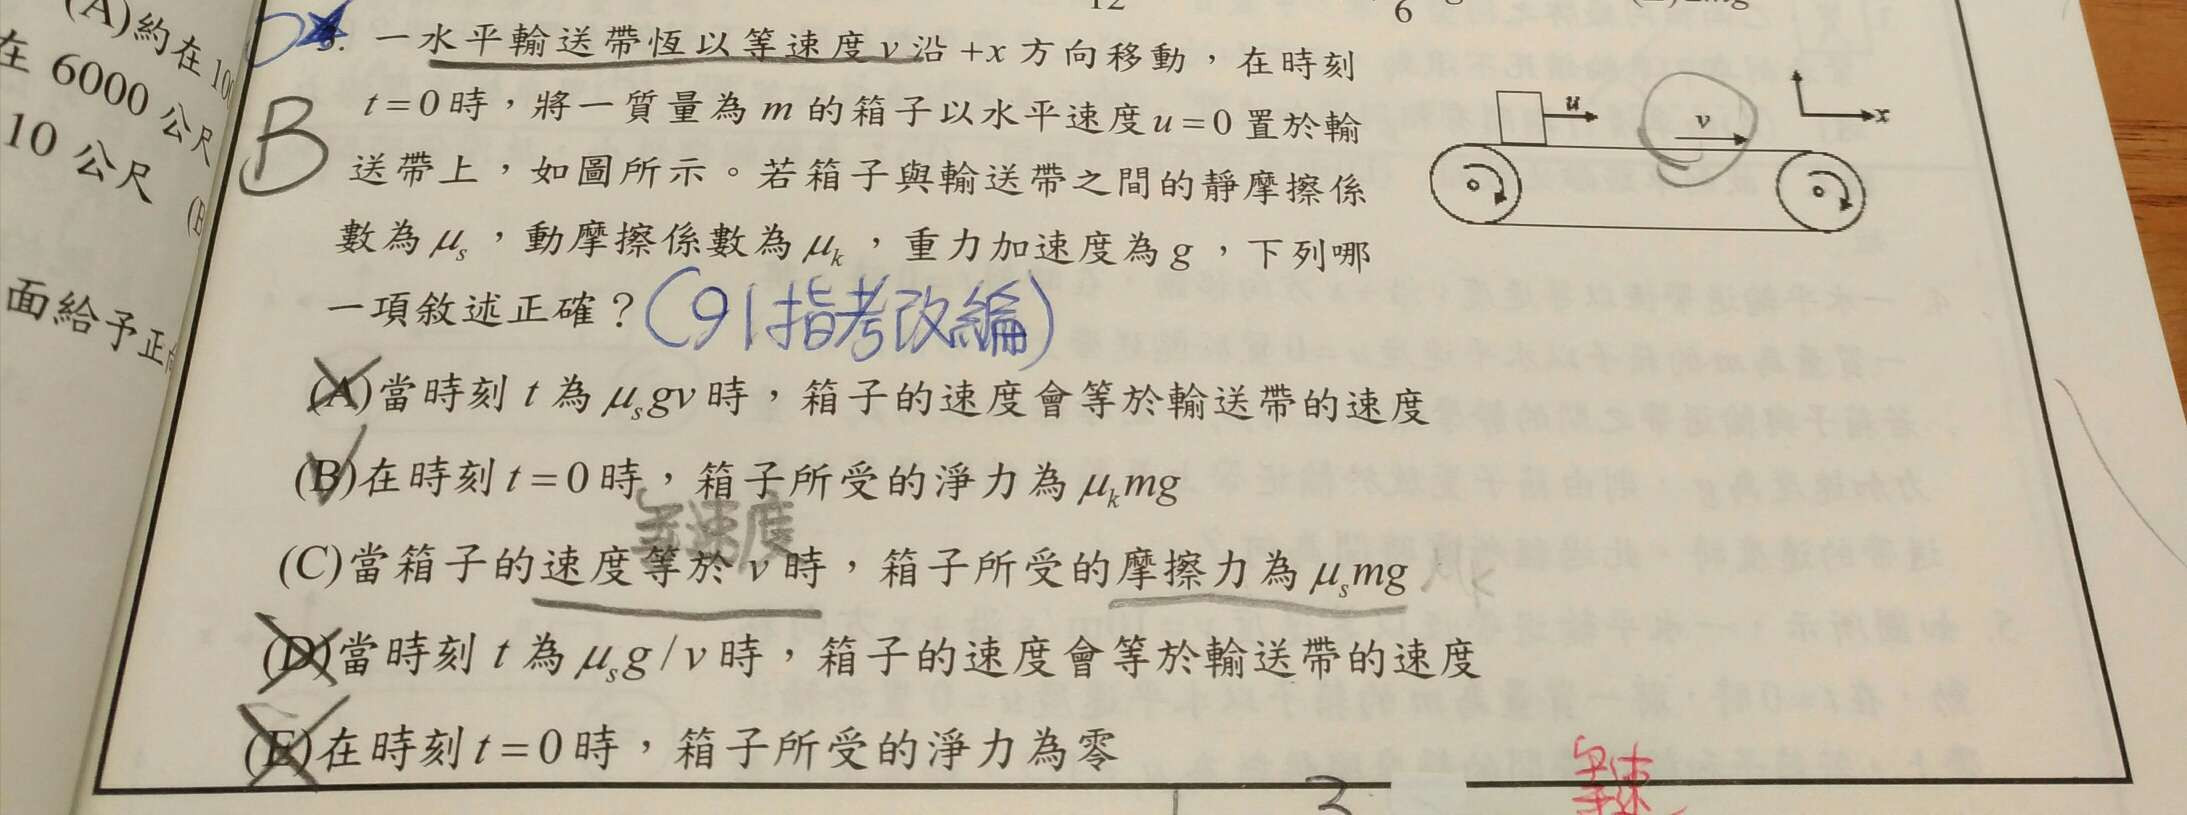 (A)約在10
在 6000 公尺
10 公尺 (B
面給予正
12
6
一水平輸送帶恆以等速度v沿+x方向移動，在時刻
t=0時，將一質量為m的箱子以水平速度u=0置於輸
送帶上，如圖所示。若箱子與輸送帶之間的靜摩擦係
數為μs，動摩擦係數為μk，重力加速度為g，下列哪
一項敘述正確？(91指考改編)
B
u
v
x
(A)當時刻t為μsgv時，箱子的速度會等於輸送帶的速度
(B)在時刻t=0時，箱子所受的淨力為μkmg
等速度
(C)當箱子的速度等於v時，箱子所受的摩擦力為μsmg
(D)當時刻t為μsg/v時，箱子的速度會等於輸送帶的速度
(E)在時刻t=0時，箱子所受的淨力為零
3
等速